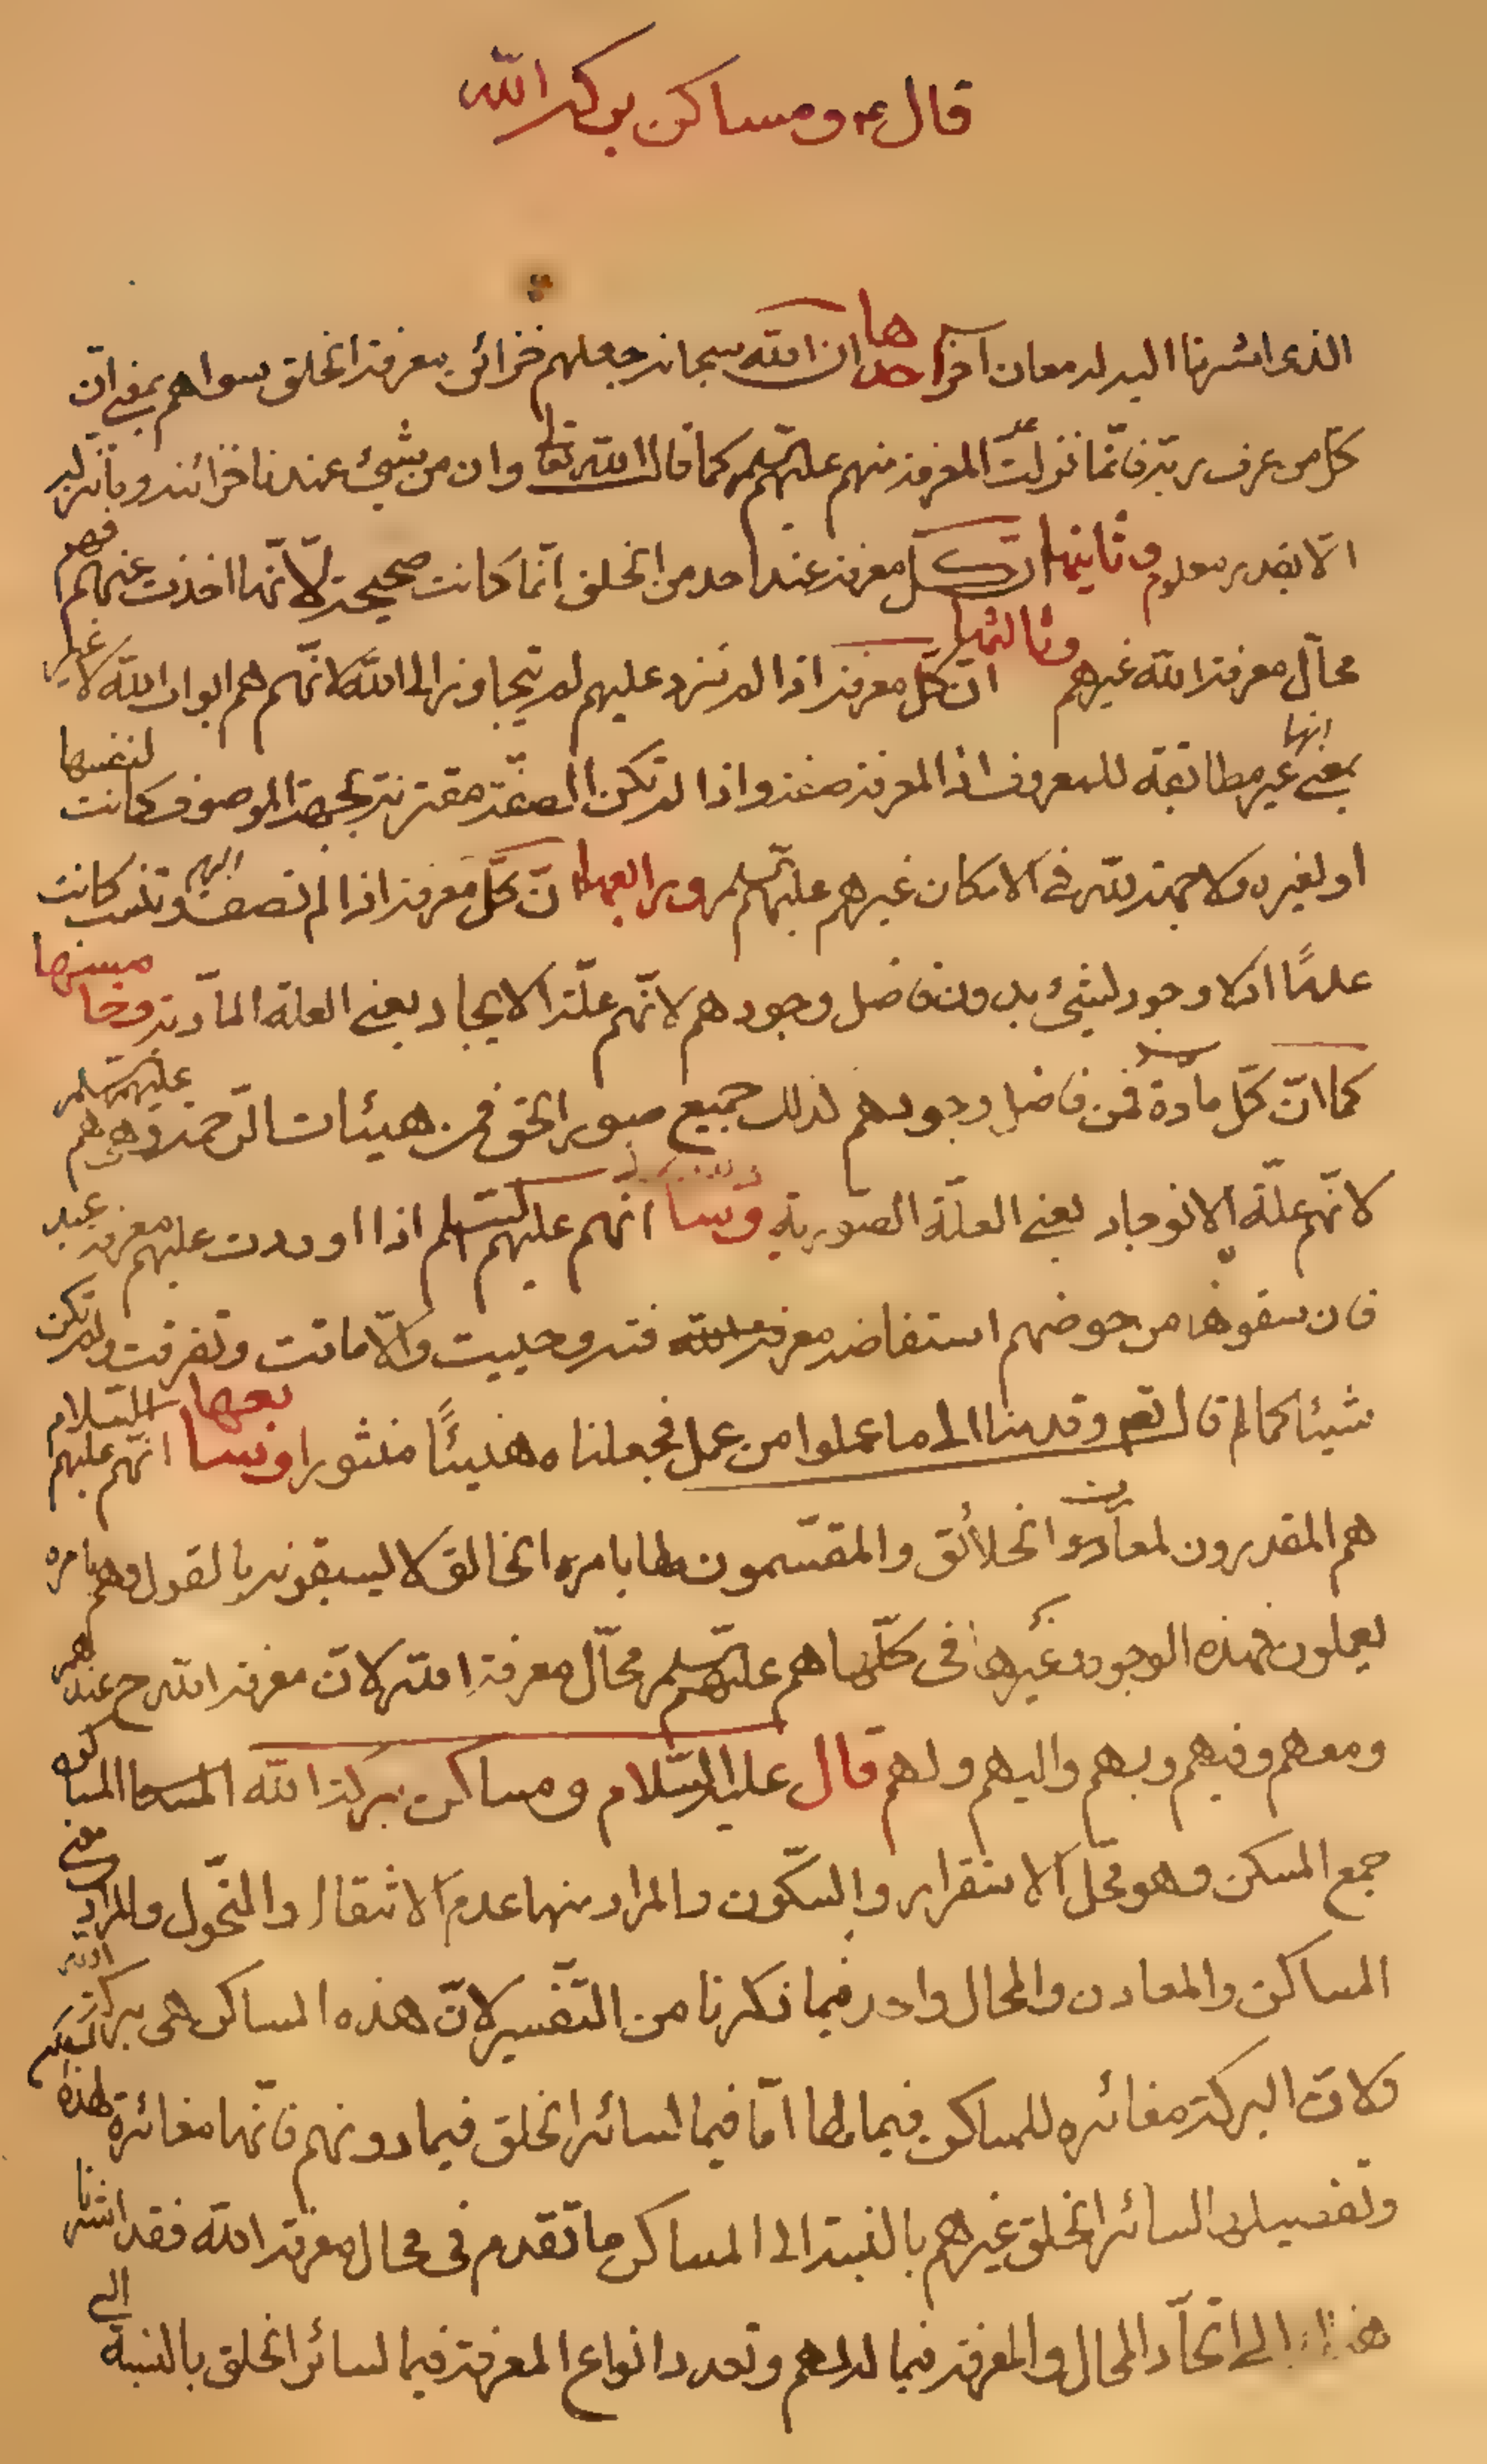 قال ع ومساكن بركة الله
الذى اشرنا اليه له معان آخر احدها ان الله سبحانه جعلهم خزائن معرفة الخلق سواهم بمعنى ان
كل من عرف ربّه فانّما نزلت المعرفة منهم عليهم السلم كما قال الله تعالى وان من شئ عندنا خزائنه وما ننزله
الّا بقدر معلوم وثانيها انّ كل معرفة عند احد من الخلق انّما كانت صحيحة لانّها اخذت عنهم فهم
محالّ معرفة الله غيرهم وثالثها انّ كلّ معرفة اذا لم ترد عليهم لم يتجاوز الى الله لانّهم هم ابواب الله لا غير
بمعنى انها غير مطابقة للمعروف اذ المعرفة صفة واذا لم تكن الصفة مقترنة بجهة الموصوف كانت لنفسها
او لغيره ولا جهة لله فى الامكان غيرهم عليهم السلم ورابعها انّ كلّ معرفة اذا لم تصف وتنسب اليهم كانت
عدمًا اذ لا وجود لشئ بدون فاضل وجودهم لانّهم علّة الايجاد يعنى العلة المادّية وخامسها
كما انّ كلّ مادة فمن فاضل وجودهم كذلك جميع صور الحق فمن هيئات الرّحمة وهى هم عليهم السلم
لانّهم علّة الانوجاد يعنى العلّة الصّورية وسا انّهم عليهم السلم اذا اوردت عليهم معرفة عبد
فان سقوها من حوضهم استفاضه معرفة الله فتروحييت والّا ماتت وتفرقت ولم تكن
شيئا كما قال تعم وقدمنا الى ما عملوا من عمل فجعلناه هنيئًا منثورا وسابعها انّهم عليهم السلام
هم المقدرون لمعادن الخلائق والمقسّمون لها بامره الخالق لا يسبقونه بالقول وهم بامره
يعملون فهذه الوجوه وغيرها فى كلّها هم عليهم السلم محالّ معرفة الله لانّ معرفة الله ح عندهم
ومعهم وفيهم وبهم واليهم ولهم قال عليه السّلام ومساكن بركة الله المساكن
جمع المسكن وهو محّل الاستقرار والسّكون والمراد منها عدم الانتقال والتّحول والمراد معنى
المساكن والمعادن والمحال واحد فيما ذكرنا من التّفسير لانّ هذه المساكن هى بركة الله
ولانّ البركة مغائره للمساكن فيما لها امّا فيما لسائر الخلق فيما دونهم فانّها مغائرة لهذه
وتفصيلها لسائر الخلق غيرهم بالنسبة الى المساكن ما تقدم فى محال معرفة الله فقد اشرنا
هنا الى اتّحاد المحال والمعرفة فيما لهم وتعدد انواع المعرفة فيما لسائر الخلق بالنسبة الى